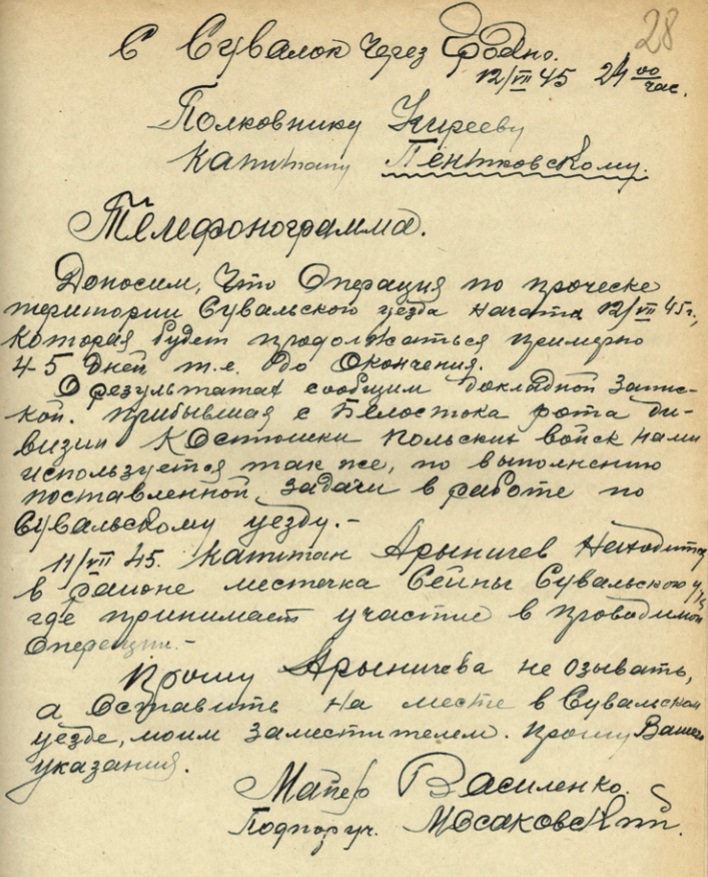 28
С Сувалок через Гродно.
12/VII 45 24 00 час.
Полковнику Кирееву
Капитану Пентковскому.
Телефонограмма.
Доносим, что операция по проческе
територии Сувальского уезда начата 12/VII 45 г.,
которая будет продолжаться примерно
4-5 дней т.е. до окончения.
О результатах сообщим докладной запис-
кой. Прибывшая с Белостока рота ди-
визии Костюшки польских войск нами
используется так же, по выполнению
поставленной задачи в работе по
Сувальскому уезду.-
11/VII 45. Капитан Арыничев находится
в районе местечка Сейны Сувальского у/зд
где принимает участие в проводимой
операции.-
Прошу Арыничева не озывать,
а оставить на месте в Сувальском
уезде, моим заместителем. Прошу Ваших
указания.
Маиер Василенко.
Подпоруч. Мосаковский.